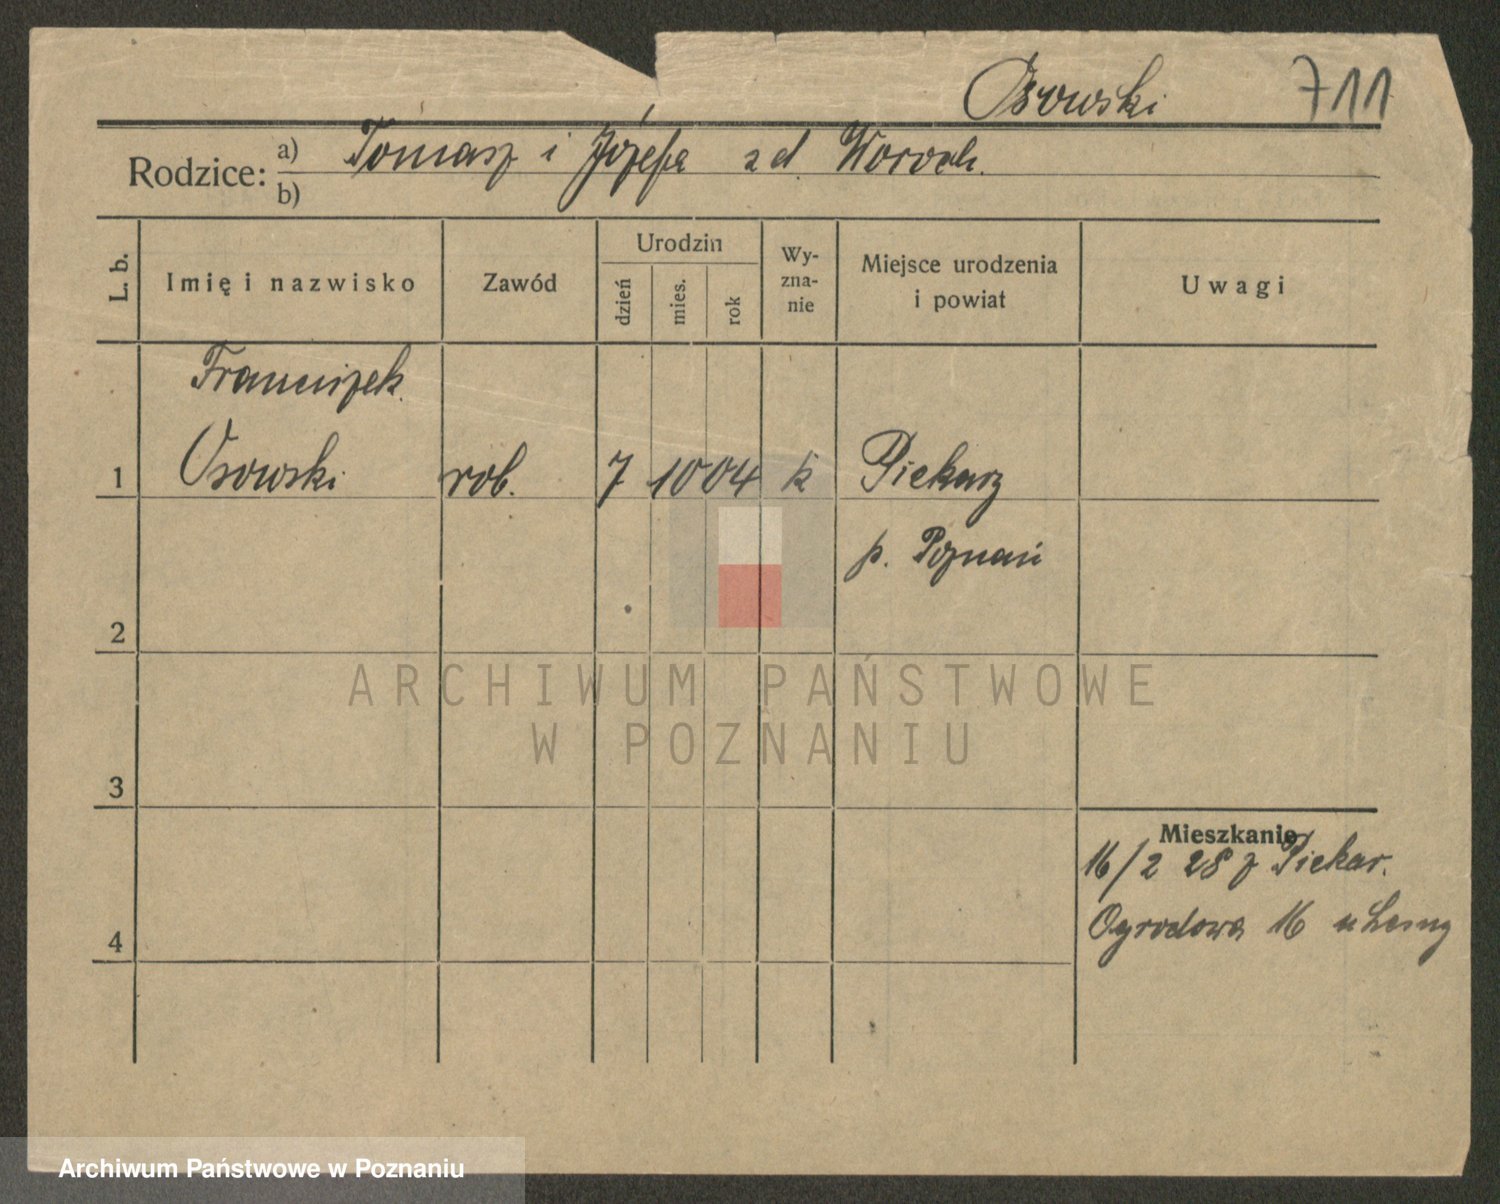 Osowski 711
Rodzice: a) Tomasz i Józefa zd. Woroch.
b)
L. b.
Imię i nazwisko
Zawód
Urodzin
dzień
mies.
rok
Wy-
zna-
nie
Miejsce urodzenia
i powiat
Uwagi
Franciszek
1 Osowski rob. 7 10 04 k Piekary
p. Poznań
2
ARCHIWUM PAŃSTWOWE
W POZNANIU
3
Mieszkanie
16/2 28 z Piekar.
Ogrodowa 16 u
4
Archiwum Państwowe w Poznaniu